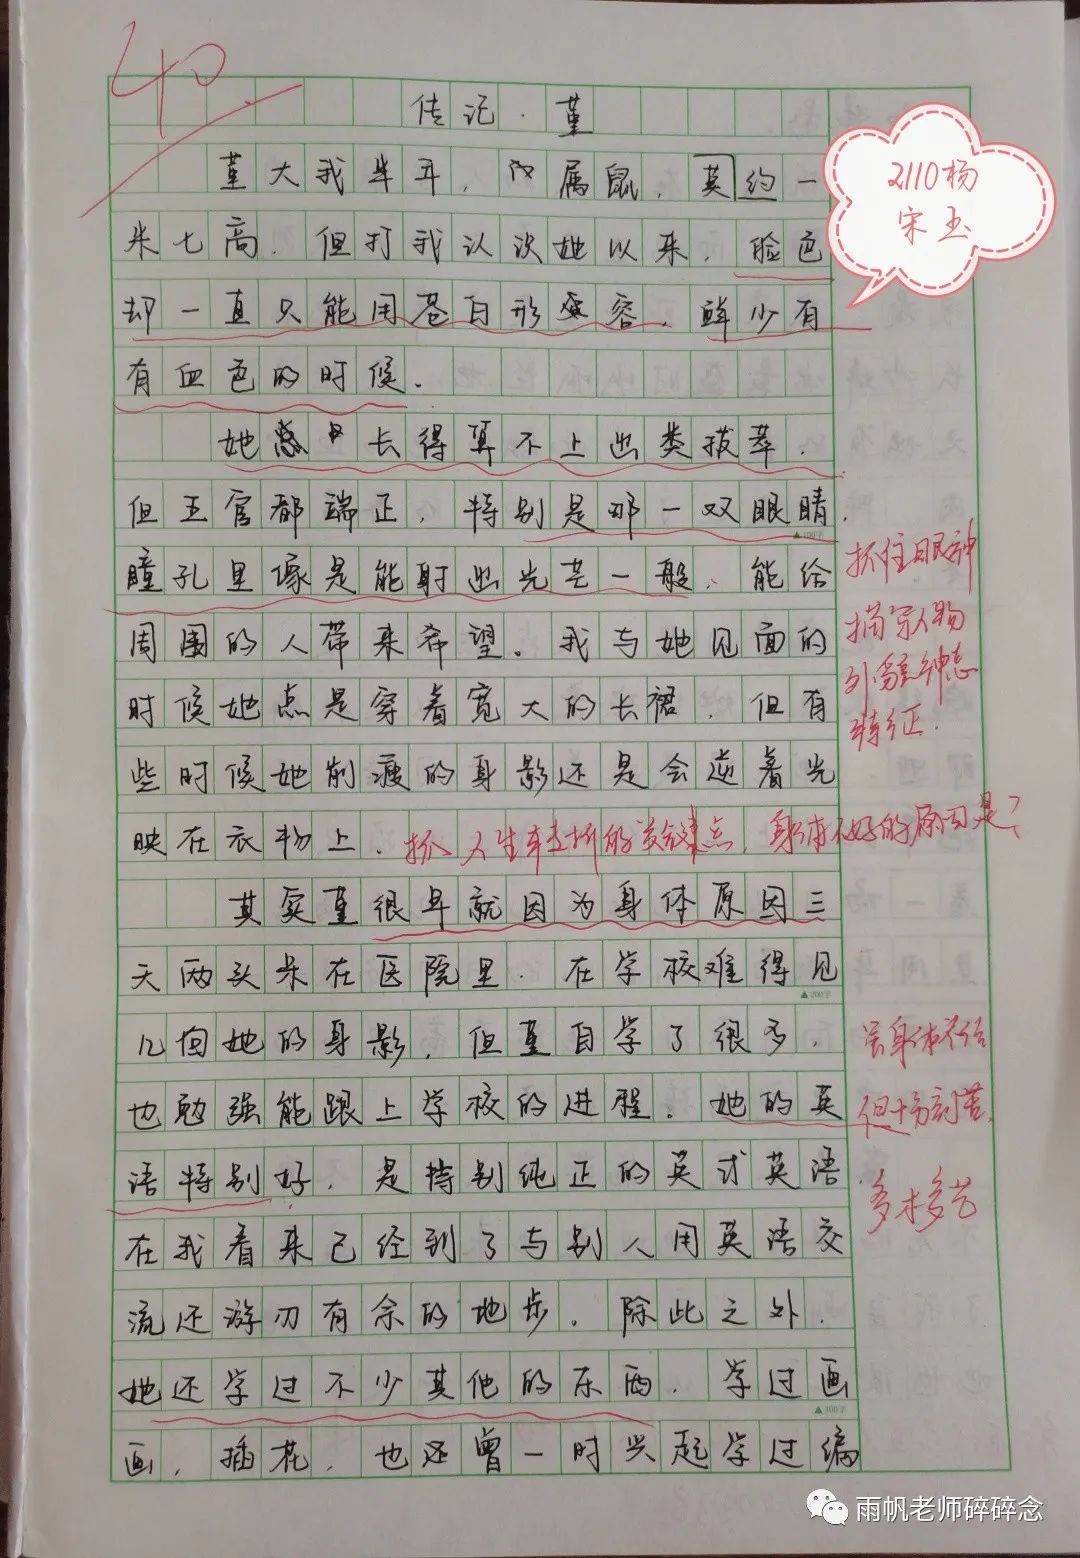 40
传记·堇
2110杨
宋玉
堇大我半年，属鼠，莫约一
米七高，但打我认识她以来，脸色
却一直只能用苍白形容，鲜少有
有血色的时候．
她长得算不上出类拔萃，
但五官都端正，特别是那一双眼睛，
瞳孔里像是能射出光芒一般，能给
周围的人带来希望。我与她见面的
时候她总是穿着宽大的长裙，但有
些时候她削瘦的身影还是会逆着光
映在衣物上．
抓住眼神
描写人物
神态
特征．
抓人生转折的关键点，身体不好的原因是？
其实堇很早就因为身体原因三
天两头呆在医院里．在学校难得见
几回她的身影，但堇自学了很多，
也勉强能跟上学校的进程．她的英
语特别好，是特别纯正的英式英语，
在我看来已经到了与别人用英语交
流还游刃有余的地步．除此之外，
她还学过不少其他的东西．学过画
画，插花，也还曾一时兴起学过编
身体不佳
但十分刻苦．
多才多艺
▲100字
▲200字
▲300字
雨帆老师碎碎念